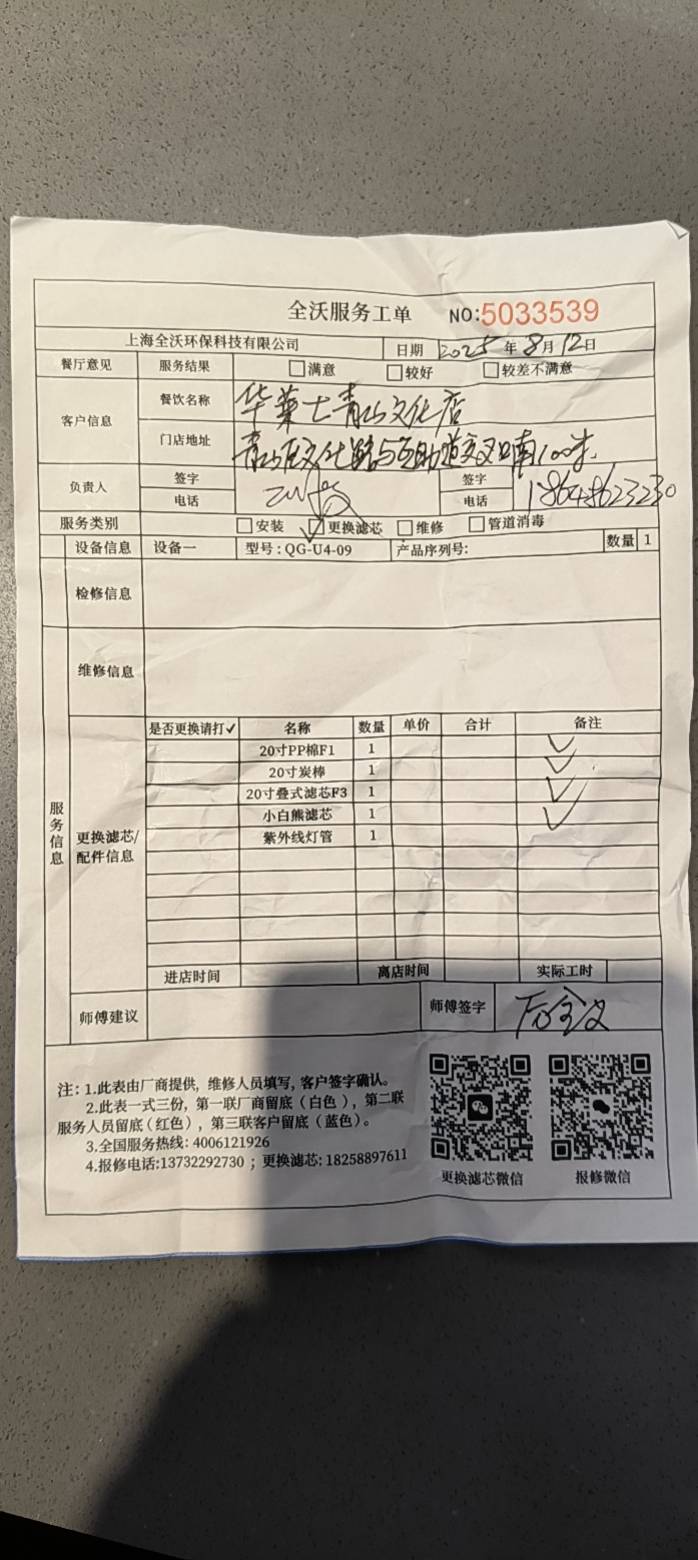 全沃服务工单 NO:5033539
上海全沃环保科技有限公司 日期 2025 年 8 月 12 日
餐厅意见 服务结果 满意 较好 较差不满意
客户信息 餐饮名称 华莱士青山文化店
门店地址 青山区文化路与互助道交叉口南100米
负责人 签字 签字
电话 电话 18648623230
服务类别 安装 更换滤芯 维修 管道消毒
设备信息 设备一 型号:QG-U4-09 产品序列号: 数量 1
检修信息
维修信息
服务信息
更换滤芯/配件信息
是否更换请打✓ 名称 数量 单价 合计 备注
20寸PP棉F1 1 ✓
20寸炭棒 1 ✓
20寸叠式滤芯F3 1 ✓
小白熊滤芯 1 ✓
紫外线灯管 1
进店时间 离店时间 实际工时
师傅建议 师傅签字
注: 1.此表由厂商提供, 维修人员填写, 客户签字确认。
2.此表一式三份, 第一联厂商留底(白色), 第二联
服务人员留底(红色), 第三联客户留底(蓝色)。
3.全国服务热线: 4006121926
4.报修电话:13732292730 ; 更换滤芯: 18258897611
更换滤芯微信 报修微信